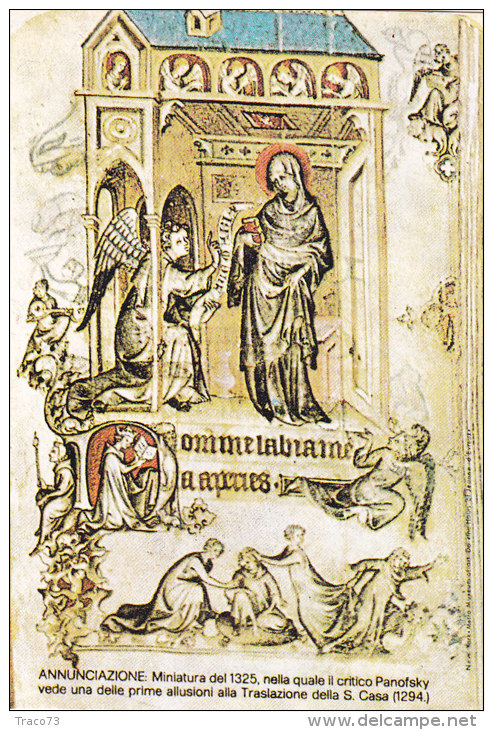 omine labia me
a aperies.
ANNUNCIAZIONE: Miniatura del 1325, nella quale il critico Panofsky
vede una delle prime allusioni alla Traslazione della S. Casa (1294.)
Traco73
delcampe.net